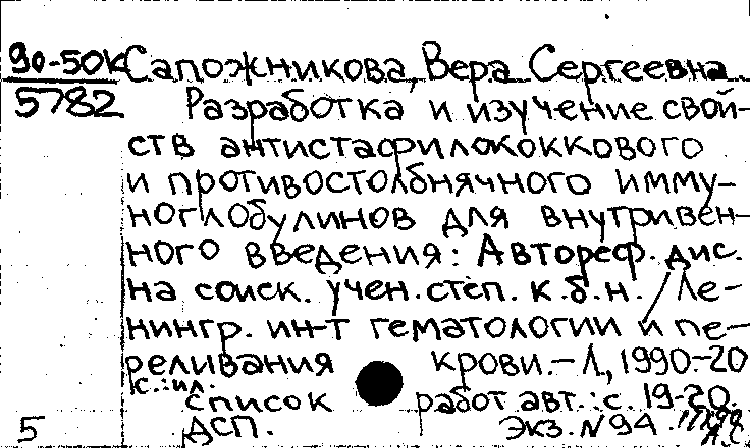 90-50К
5782
Сапожникова, Вера Сергеевна
Разработка и изучение свой-
ств антистафилококкового
и противостолбнячного имму-
ноглобулинов для внутривен-
ного введения: Автореф. дис.
на соиск. учен. степ. к.б.н. / Ле-
нингр. ин-т гематологии и пе-
реливания крови. – Л, 1990.-20
с.: ил.
список работ авт.: с. 19-20.
5 ДСП. Экз. N 94.